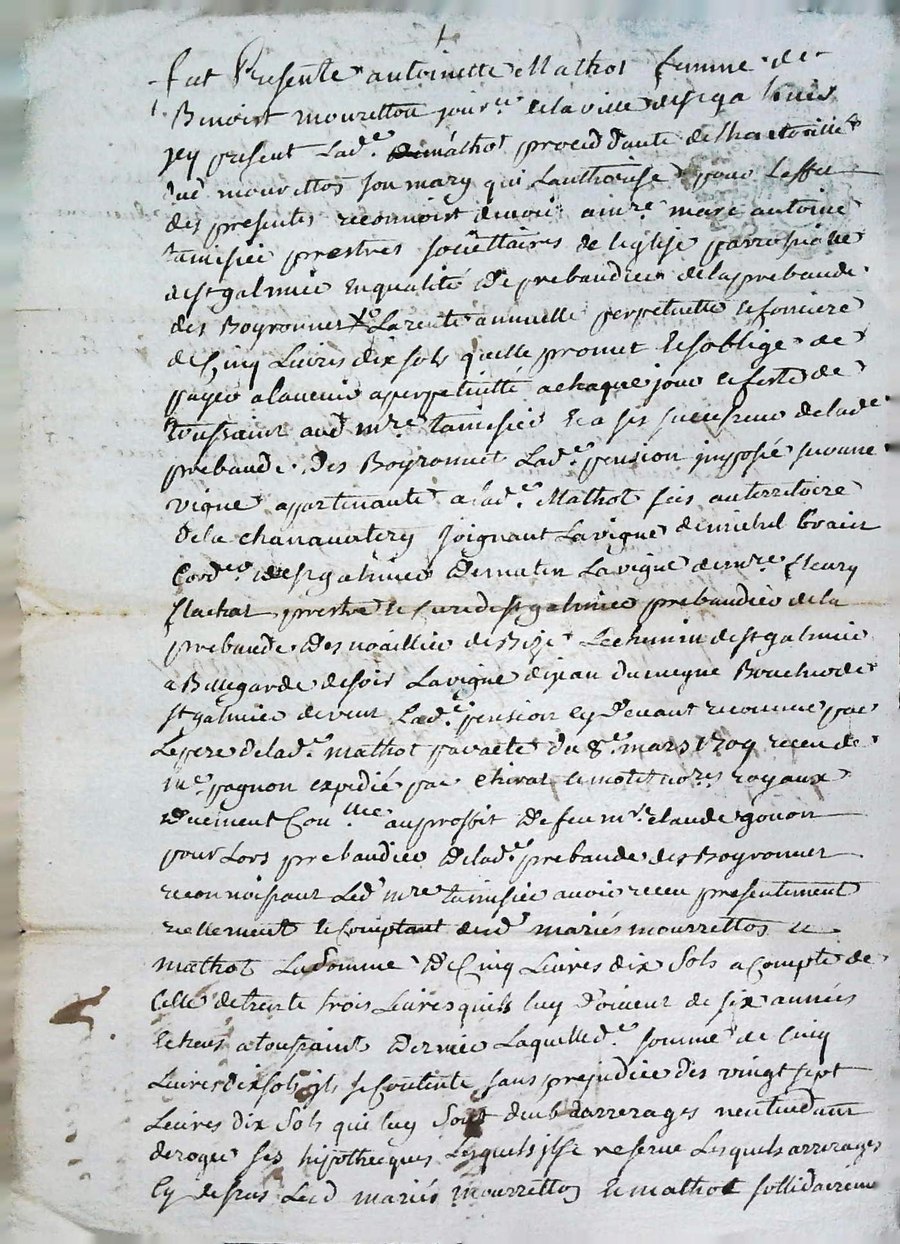 fut Presente antoinette Mathot femme de
Benoist mouretton jour.re de la ville de st galmier
jcy present Lad.e mathot proceddante de Lhautoritté
dud mourettos son mary qui Lauthorise pour Leffet
des presentes reconnoist devoir a m.re marc antoine
tamisier prestres societtaires de leglise parrosialle
de st galmier en qualité de prebandier de la prebande
des Boyronnet La rente annuelle perpetuelle et fonciere
de Cinq Livres dix sols quelle promet et soblige de
payer a lavenir a perpetuitté a chaque jour et feste de
toussaint aud m.re tamisier et a ses successeur de lad.e
prebande des Boyronnet Lad.e pension jmposée sur une
vigne appartenante a lad.e Mathot size au territoire
de la joignant La vigne de michel
Cord.er de st galmier de matin La vigne de m.re fleury
flachat prestre et curé de st galmier prebandier de la
prebande des noaillier de bize Le chemin de st galmier
a Bellegarde de soir La vigne de jean dumeyne Boucher de
st galmier de vent Lad.e pension cy devant reconnue par
Le pere de lad.e mathot par acte du 8.e mars 1709 receu de
m.e pagnon expedié par chirat et no.res royaux
duement Con.llé au proffit de feu m.re claude gonon
pour Lors prebandier de lad.e prebande des Boyronnet
reconnoissant Led m.re tamisier avoir receu presentement
reellement et Comptant desd mariés mourrettos et
mathot La Somme de Cinq Livres dix Sols a Compte de
Celle de trente trois Livres quils luy doivent de six années
echeues a toussaint dernier Laquelle d.e somme de Cinq
Livres dix sols jls se Contente sans prejudice des vingt sept
Livres dix Sols qui luy Sont deub darrerages n'entendant
deroger ses hipothecques Lesquels jl se reserve Lesquels arrerages
Cy dessus Lesd mariés mourretton et mathot sollidairement